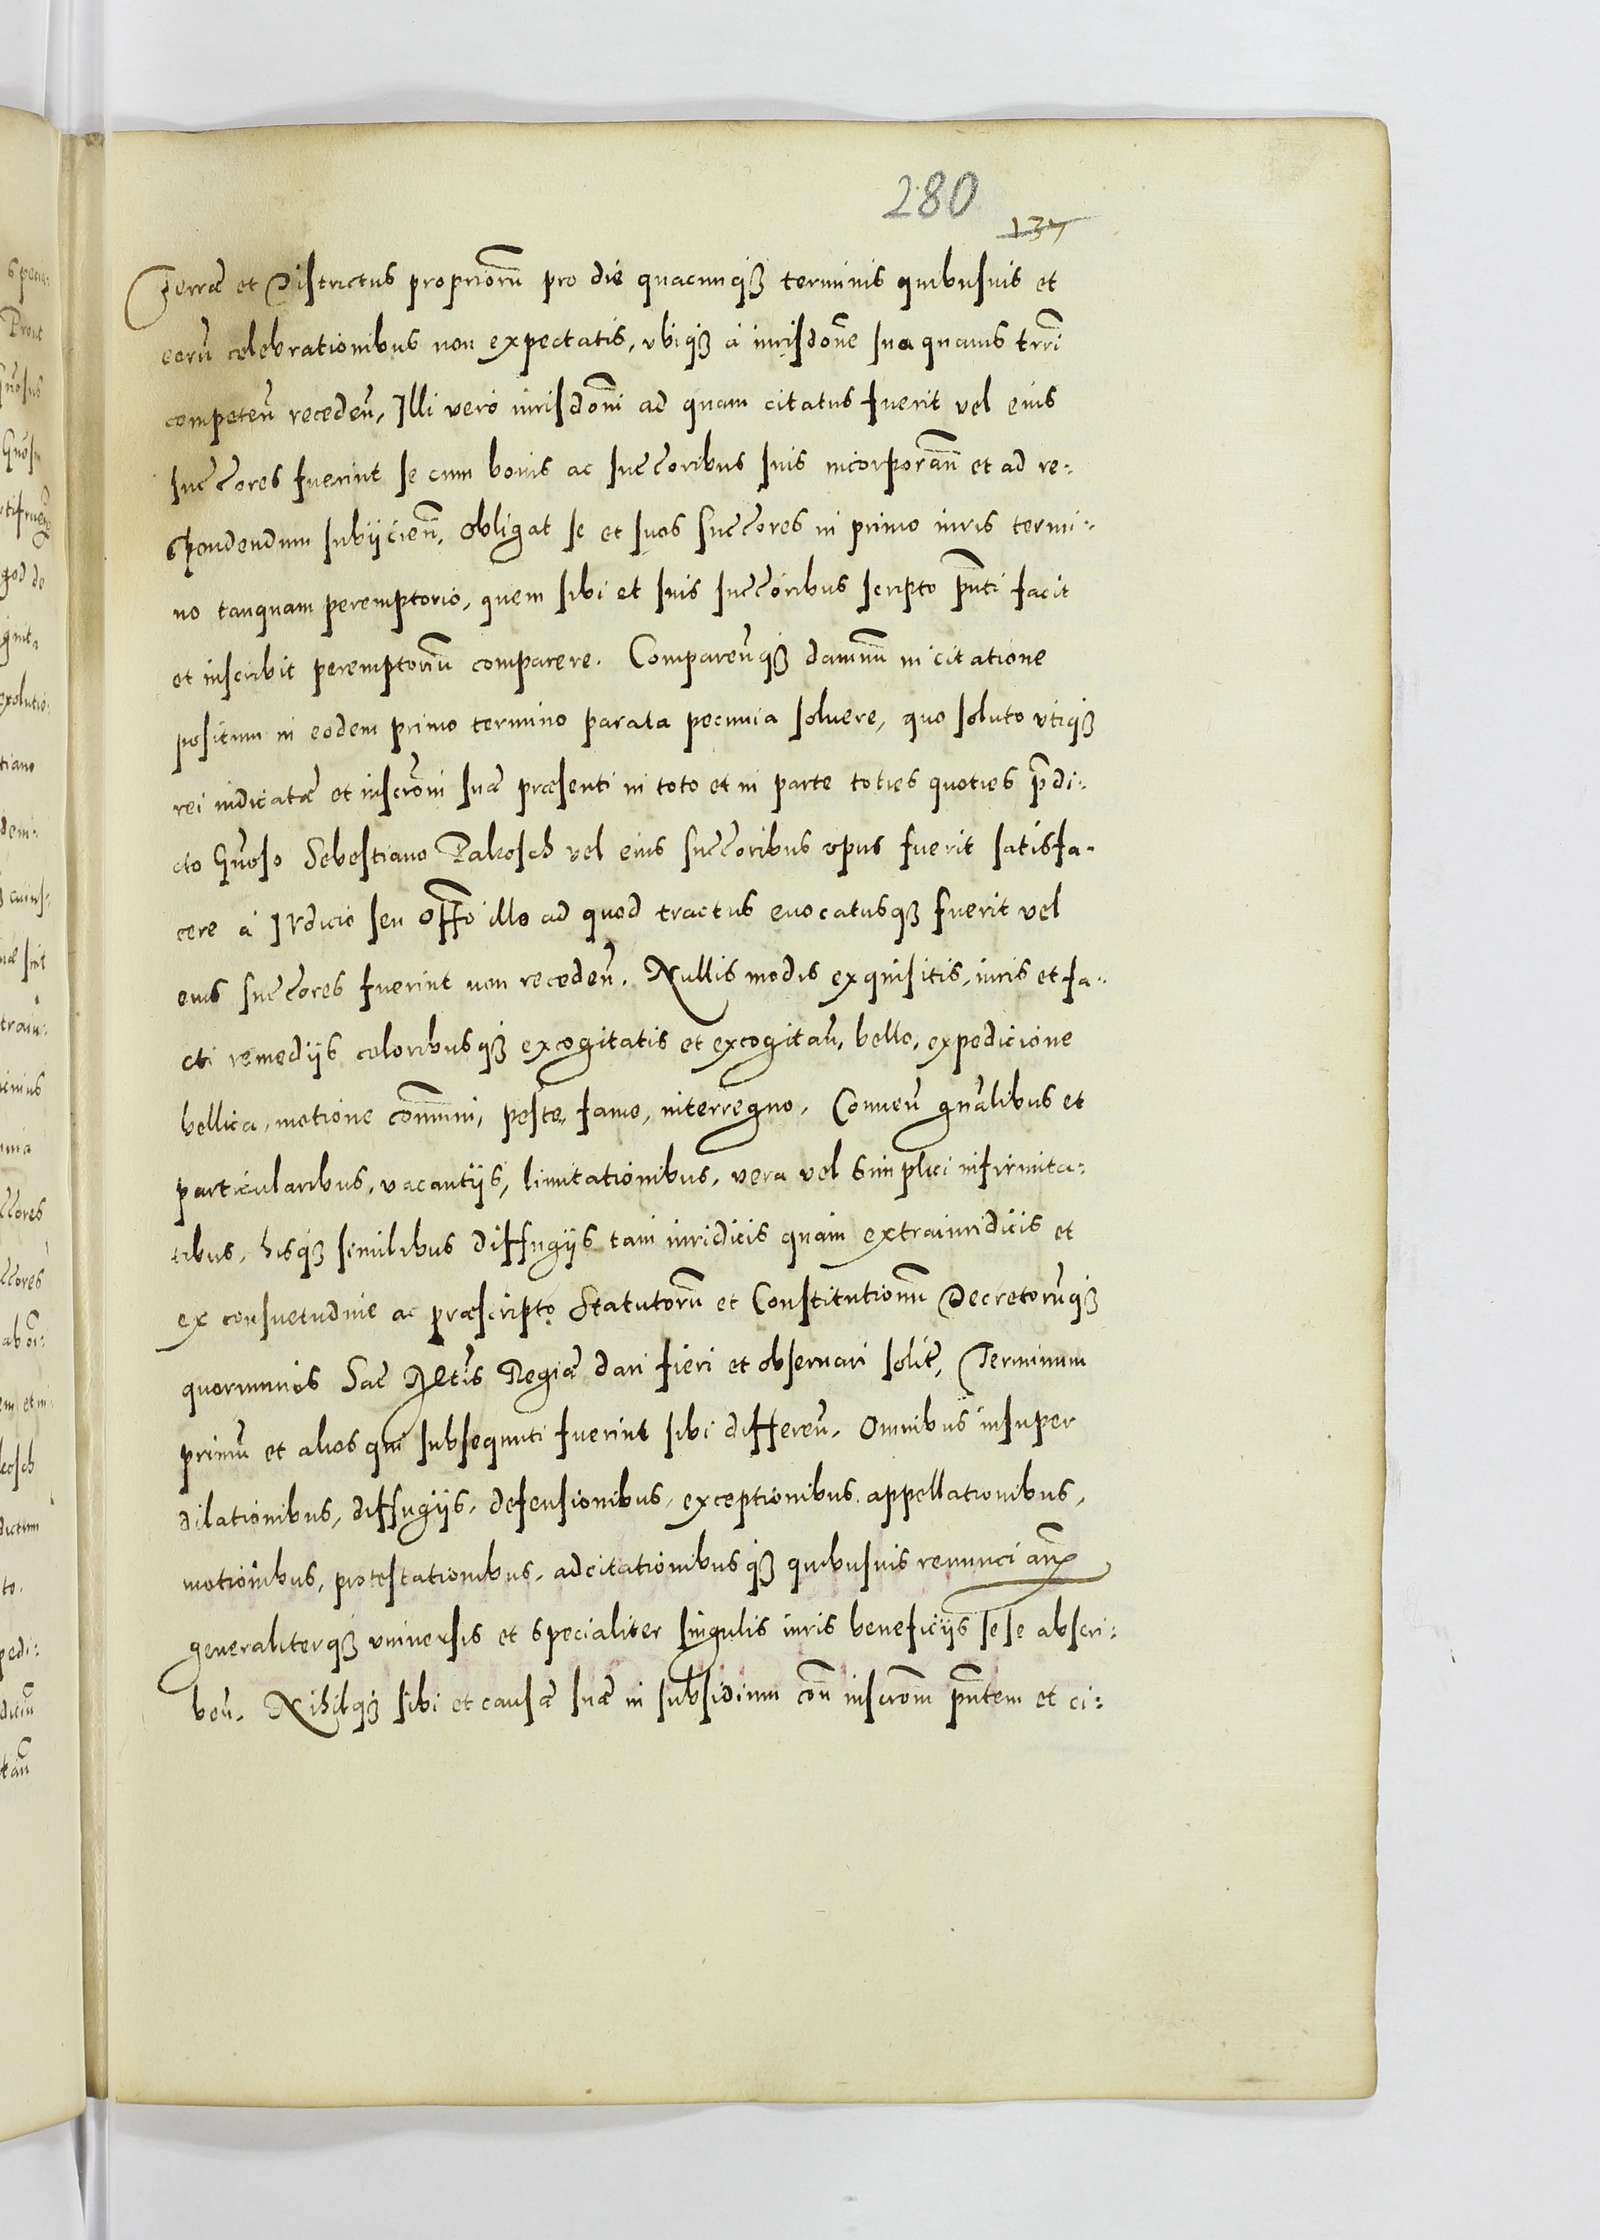 280
137
Terræ et Districtus propriorũ pro die quacunqȝ terminis quibusuis et
eorũ celebrationibus non expectatis, vbiqȝ à iurisdoñe sua quauis tr̃ri
competeñ recedeñ, Illi verò iurisdoñi ad quam citatus fuerit vel eius
succ̃ores fuerint se cum bonis ac succ̃oribus suis incorporañ et ad re-
spondendum subijcieñ. Obligat se et suos Succ̃ores in primo iuris termi-
no tanquam peremptorio, quem sibi et suis succ̃oribus scripto p̃nti facit
et inscribit peremptoriũ comparere. Compareñqȝ damnũ in citatione
positum in eodem primo termino parata pecunia soluere, quo soluto vtiqȝ
rei iudicatæ et inscroñi suæ præsenti in toto et in parte toties quoties p̃di-
cto Gñoso Sebestiano Pakosch vel eius succ̃oribus opus fuerit satisfa-
cere à Iudicio seu off̃o illo ad quod tractus euocatusqȝ fuerit vel
eius succ̃ores fuerint non recedeñ. Nullis modis exquisitis, iuris et fa-
cti remedijs coloribusqȝ excogitatis et excogitañ, bello, expedicione
bellica, motione com̃uni, peste, fame, interregno, Conueñ gñalibus et
particularibus, vacantijs, limitationibus, vera vel simplici infirmita-
tibus, hisqȝ similibus diffugijs tam iuridicis quàm extraiuridicis et
ex consuetudine ac præscripto Statutorũ et Constitutionũ Decretorũqȝ
quorumuis Sac̃ M̃ttis Regiæ dari fieri et obseruari solit̃, Terminum
primũ et alios qui subsequuti fuerint sibi differeñ. Omnibus insuper
dilationibus, diffugijs, defensionibus, exceptionibus, appellationibus,
motionibus, protestationibus, adcitationibusqȝ quibusuis renunciañ
generaliterqȝ vniuersis et specialiter singulis iuris beneficijs sese abscri-
beñ. Nihilqȝ sibi et causæ suæ in subsidium coñ inscroñm p̃ntem et ci-